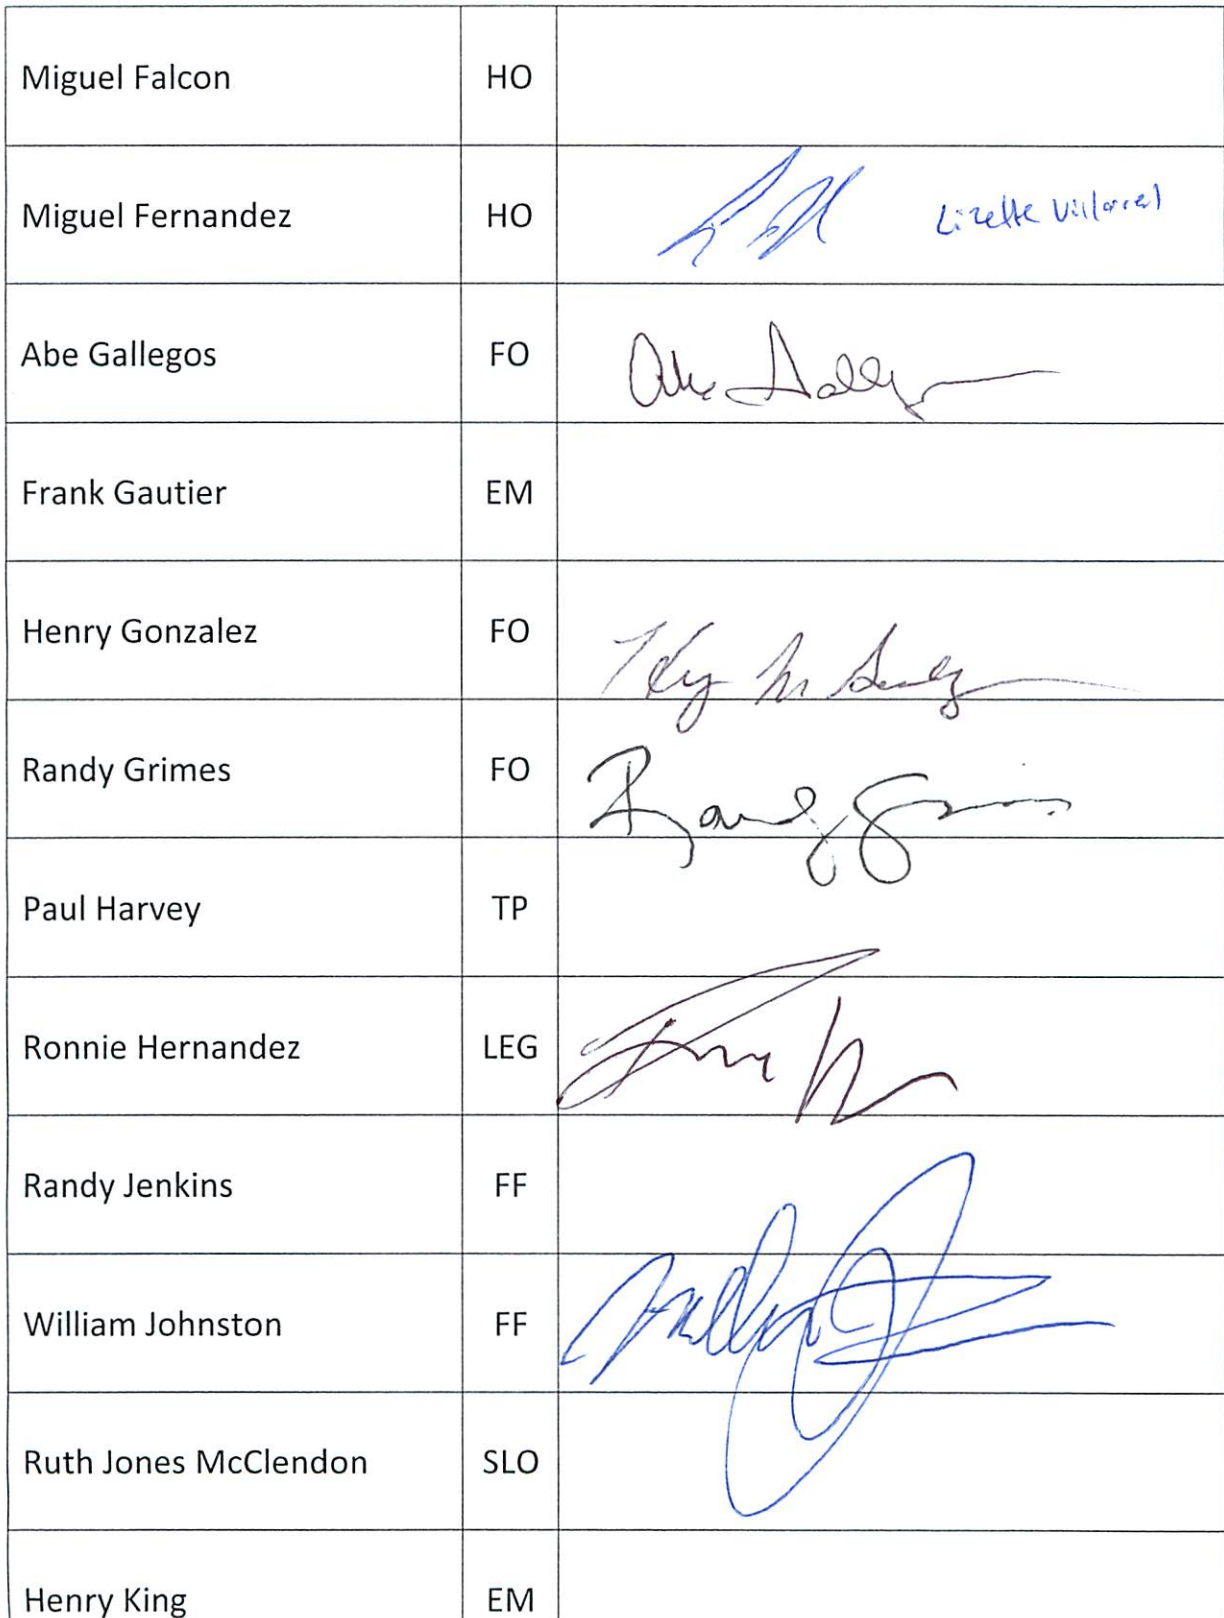 Miguel Falcon HO
Miguel Fernandez HO Lizette Villarreal
Abe Gallegos FO Abe Galleg
Frank Gautier EM
Henry Gonzalez FO
Randy Grimes FO Randy Grimes
Paul Harvey TP
Ronnie Hernandez LEG
Randy Jenkins FF
William Johnston FF
Ruth Jones McClendon SLO
Henry King EM